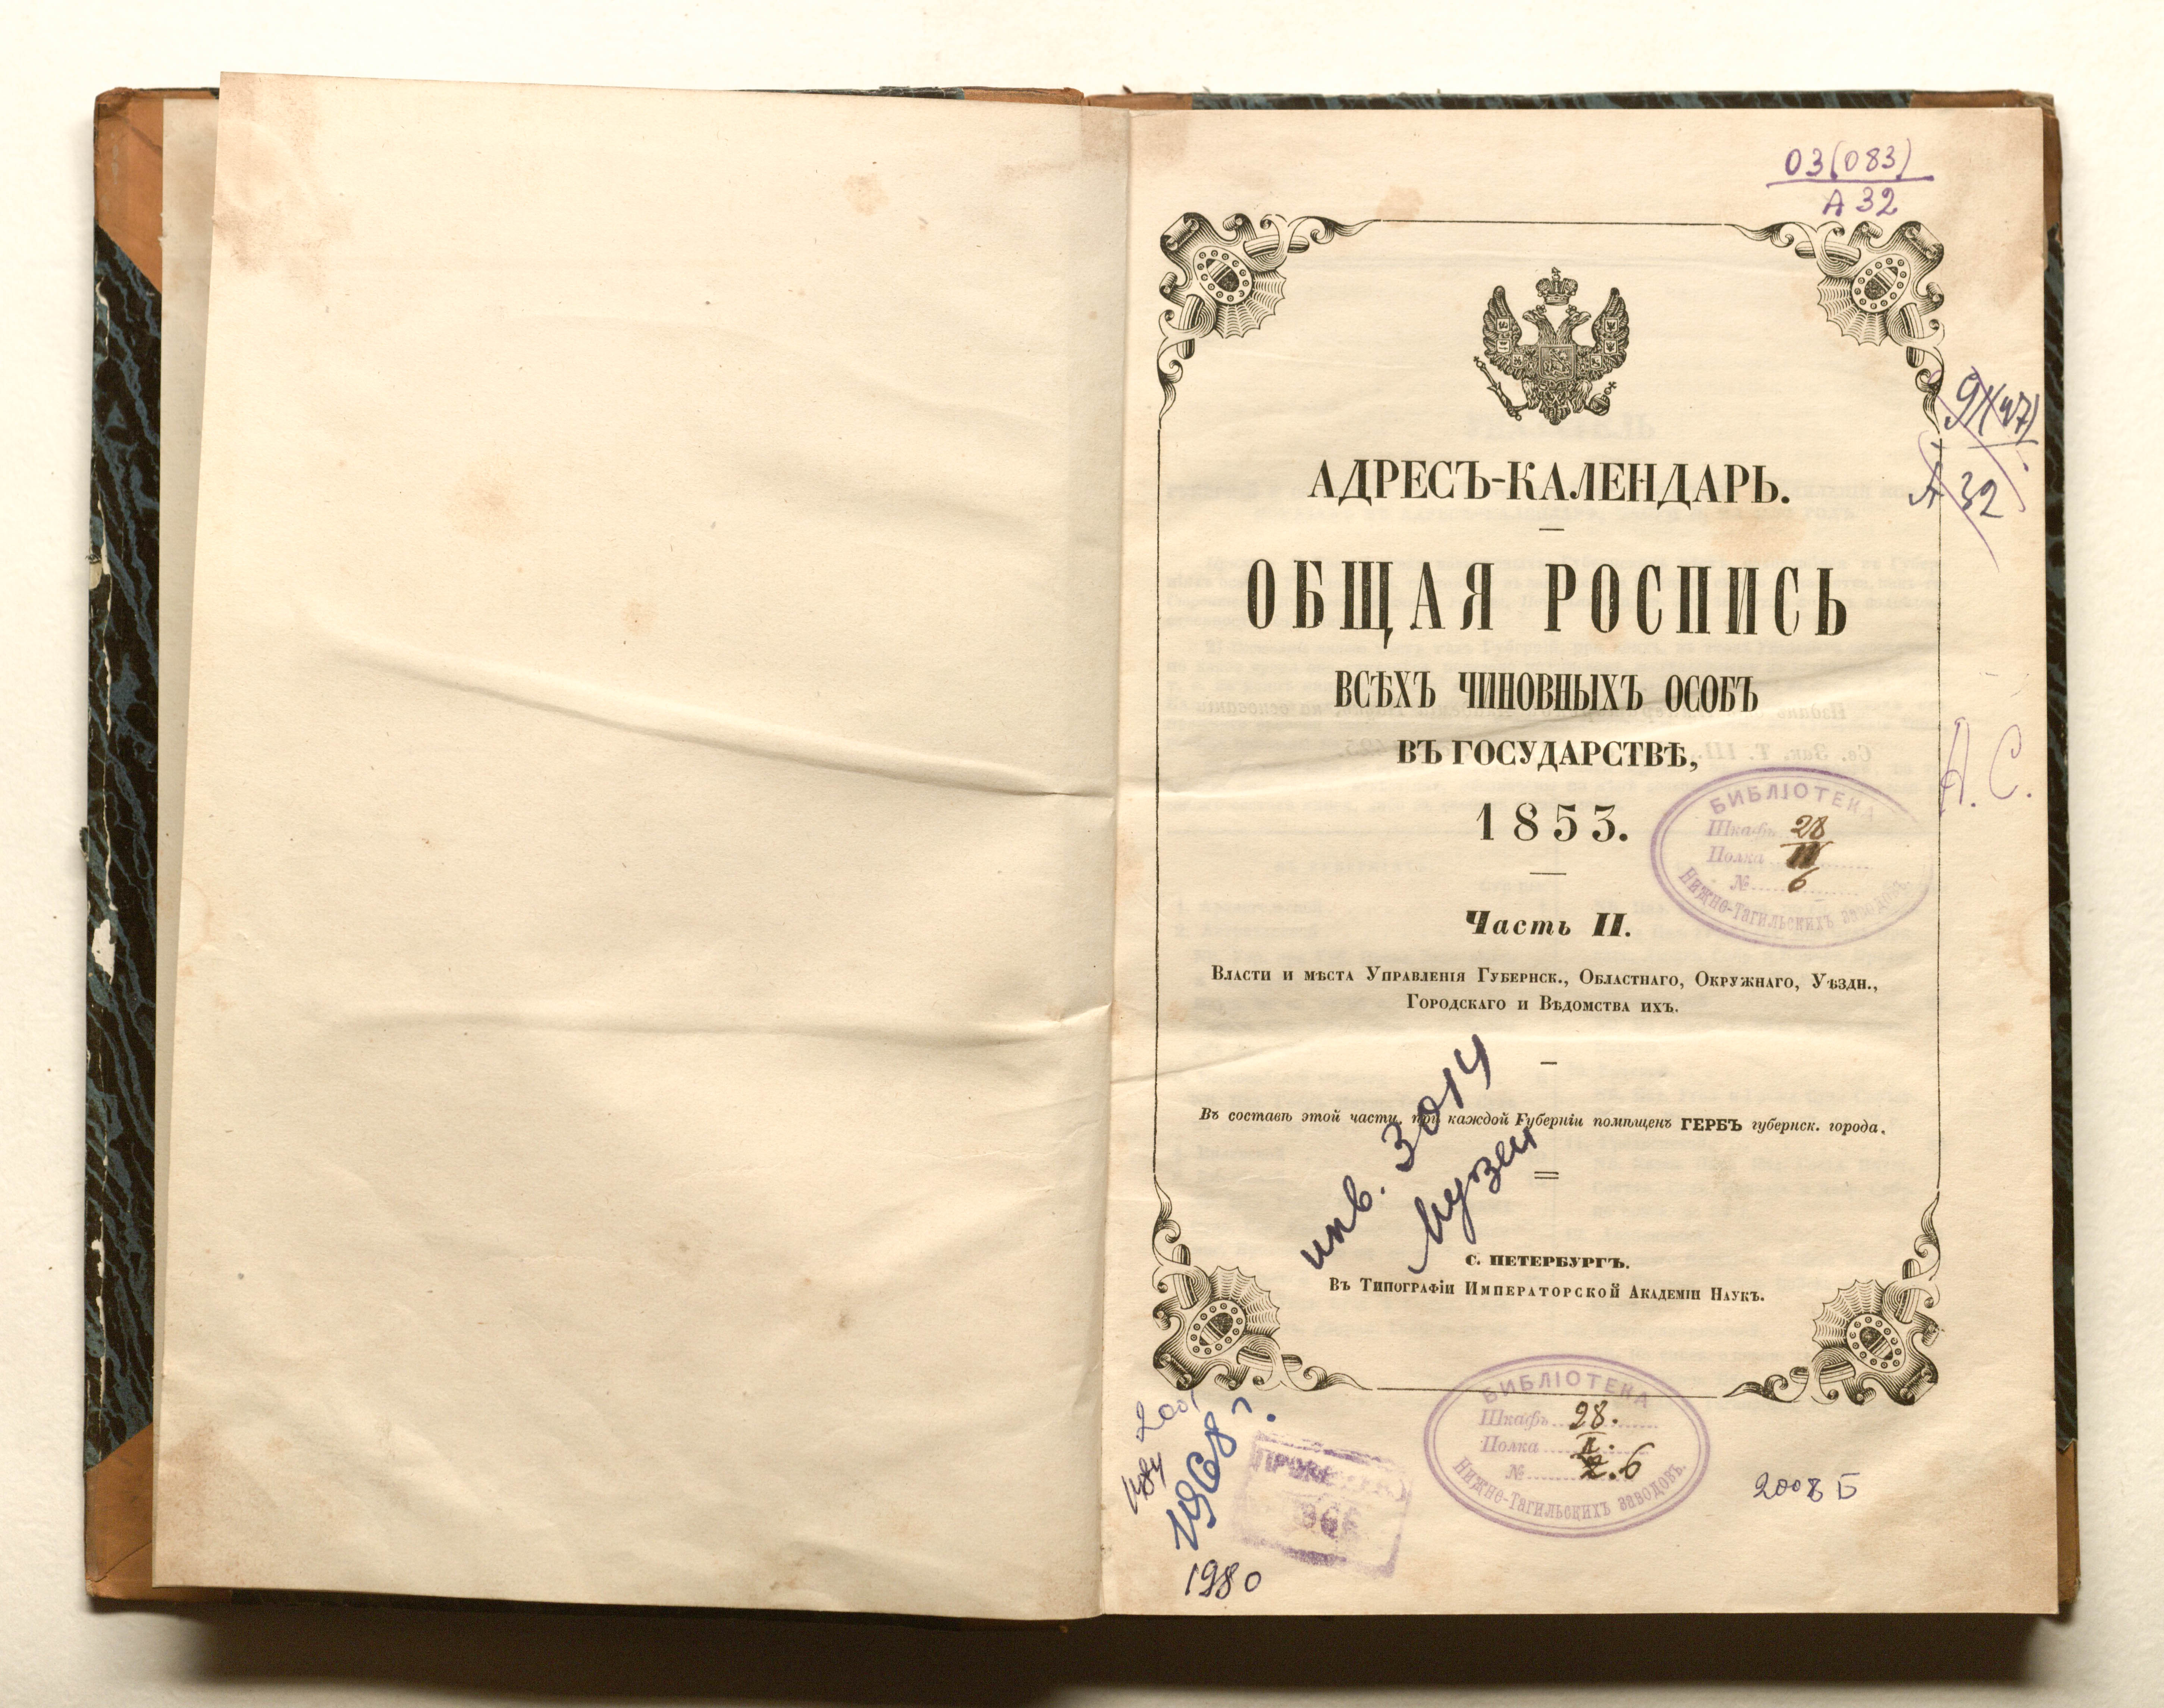 03(083)
А 32
91(47)
А 32
АДРЕСЪ-КАЛЕНДАРЬ.
ОБЩАЯ РОСПИСЬ
ВСѢХЪ ЧИНОВНЫХЪ ОСОБЪ
ВЪ ГОСУДАРСТВѢ,
1853.
А. С.
БИБЛІОТЕКА
Шкафъ 28
Полка III
№ 6
Нижне-Тагильскихъ заводовъ.
Часть II.
Власти и мѣста Управленія Губернск., Областнаго, Окружнаго, Уѣздн.,
Городскаго и Вѣдомства ихъ.
Въ составѣ этой части, при каждой Губерніи помѣщенъ ГЕРБЪ губернск. города.
инв. 3014
Музей
С. ПЕТЕРБУРГЪ.
Въ Типографіи Императорской Академіи Наукъ.
БИБЛІОТЕКА
Шкафъ 28.
Полка
№ 6
Нижне-Тагильскихъ заводовъ.
1968 г.
1980
2008 Б